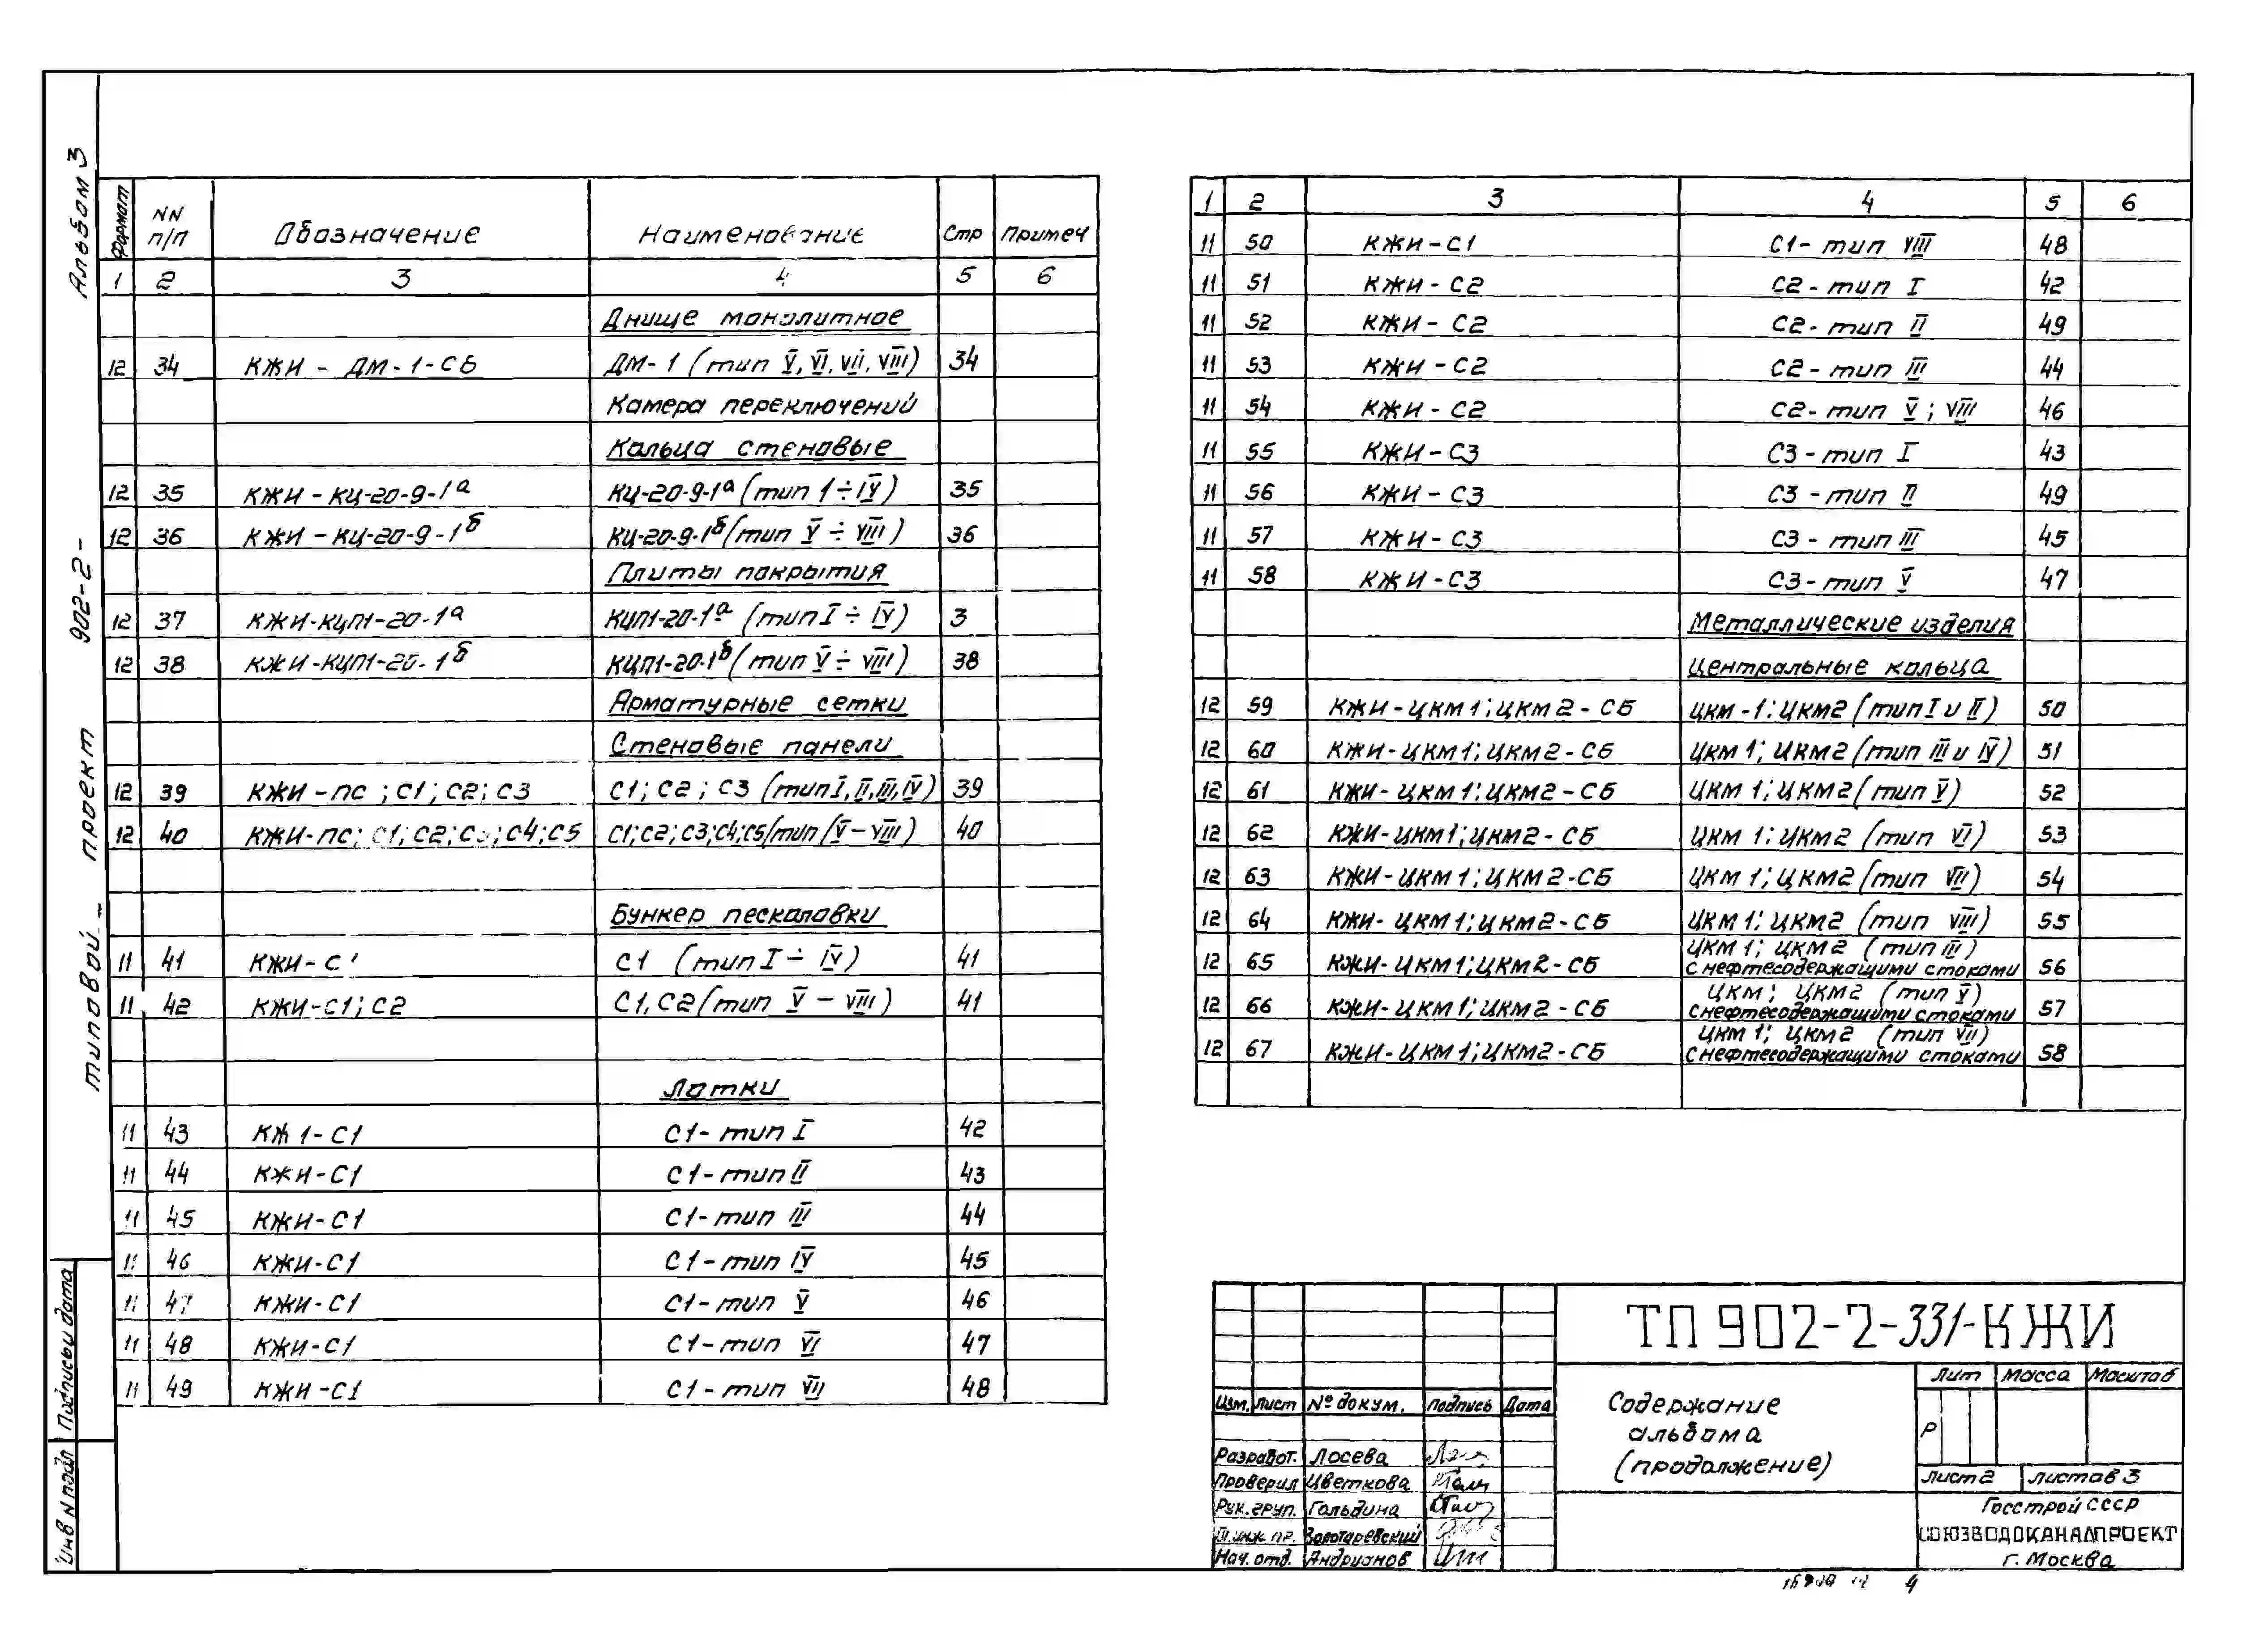 Альбом 3
типовой проект 902-2-
Подпись и дата
Инв N подл
Формат NN п/п Обозначение Наименование Стр Примеч
1 2 3 4 5 6
Днище монолитное
12 34 КЖИ - ДМ-1-СБ ДМ-1 (тип V, VI, VII, VIII) 34
Камера переключений
Кольца стеновые
12 35 КЖИ-КЦ-20-9-1а КЦ-20-9-1а (тип I÷IV) 35
12 36 КЖИ-КЦ-20-9-1б КЦ-20-9-1б (тип V ÷ VIII) 36
Плиты покрытия
12 37 КЖИ-КЦП1-20-1а КЦП1-20-1а (тип I ÷ IV) 3
12 38 КЖИ-КЦП1-20-1б КЦП1-20-1б (тип V ÷ VIII) 38
Арматурные сетки
Стеновые панели
12 39 КЖИ-ПС; С1; С2; С3 С1; С2; С3 (тип I, II, III, IV) 39
12 40 КЖИ-ПС; С1; С2; С3; С4; С5 С1; С2; С3; С4; С5 (тип V-VIII) 40
Бункер песколовки
11 41 КЖИ-С1 С1 (тип I ÷ IV) 41
11 42 КЖИ-С1; С2 С1, С2 (тип V - VIII) 41
Лотки
11 43 КЖИ-С1 С1-тип I 42
11 44 КЖИ-С1 С1-тип II 43
11 45 КЖИ-С1 С1-тип III 44
11 46 КЖИ-С1 С1-тип IV 45
11 47 КЖИ-С1 С1-тип V 46
11 48 КЖИ-С1 С1-тип VI 47
11 49 КЖИ-С1 С1-тип VII 48
1 2 3 4 5 6
11 50 КЖИ-С1 С1-тип VIII 48
11 51 КЖИ-С2 С2-тип I 42
11 52 КЖИ-С2 С2-тип II 49
11 53 КЖИ-С2 С2-тип III 44
11 54 КЖИ-С2 С2-тип V; VIII 46
11 55 КЖИ-С3 С3-тип I 43
11 56 КЖИ-С3 С3-тип II 49
11 57 КЖИ-С3 С3-тип III 45
11 58 КЖИ-С3 С3-тип V 47
Металлические изделия
Центральные кольца
12 59 КЖИ-ЦКМ1; ЦКМ2-СБ ЦКМ-1; ЦКМ2 (тип I и II) 50
12 60 КЖИ-ЦКМ1; ЦКМ2-СБ ЦКМ1; ЦКМ2 (тип III и IV) 51
12 61 КЖИ-ЦКМ1; ЦКМ2-СБ ЦКМ1; ЦКМ2 (тип V) 52
12 62 КЖИ-ЦКМ1; ЦКМ2-СБ ЦКМ1; ЦКМ2 (тип VI) 53
12 63 КЖИ-ЦКМ1; ЦКМ2-СБ ЦКМ1; ЦКМ2 (тип VII) 54
12 64 КЖИ-ЦКМ1; ЦКМ2-СБ ЦКМ1; ЦКМ2 (тип VIII) 55
ЦКМ1; ЦКМ2 (тип III)
12 65 КЖИ-ЦКМ1; ЦКМ2-СБ с нефтесодержащими стоками 56
ЦКМ; ЦКМ2 (тип V)
12 66 КЖИ-ЦКМ1; ЦКМ2-СБ с нефтесодержащими стоками 57
ЦКМ1; ЦКМ2 (тип VII)
12 67 КЖИ-ЦКМ1; ЦКМ2-СБ с нефтесодержащими стоками 58
ТП 902-2-331-КЖИ
Изм. Лист № докум. Подпись Дата
Разработ. Лосева
Проверил Цветкова
Рук. груп. Гольдина
Гл. инж. пр. Золотаревский
Нач. отд. Андрианов
Содержание
альбома
(продолжение)
Лит Масса Масштаб
Р
Лист 2 Листов 3
Госстрой СССР
СОЮЗВОДОКАНАЛПРОЕКТ
г. Москва
4